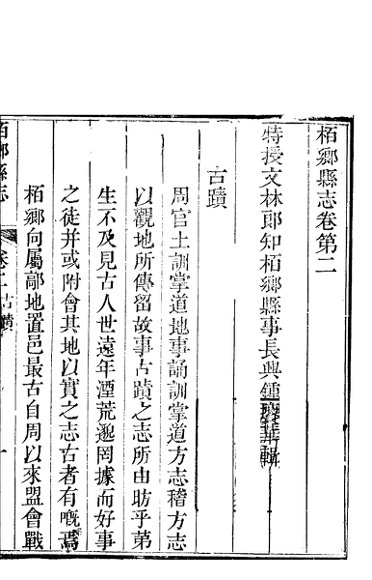 栢鄉縣志卷第二
特授文林郎知栢鄉縣事長興鍾賡華輯
古蹟
周官土訓掌道地事誦訓掌道方志稽方志
以觀地所傳留故事古蹟之志所由昉乎苐
生不及見古人世遠年湮荒邈罔據而好事
之徒并或附會其地以實之志古者有嘅焉
栢鄉向屬鄗地置邑最古自周以來盟會戰
栢鄉縣志 卷二 古蹟 一